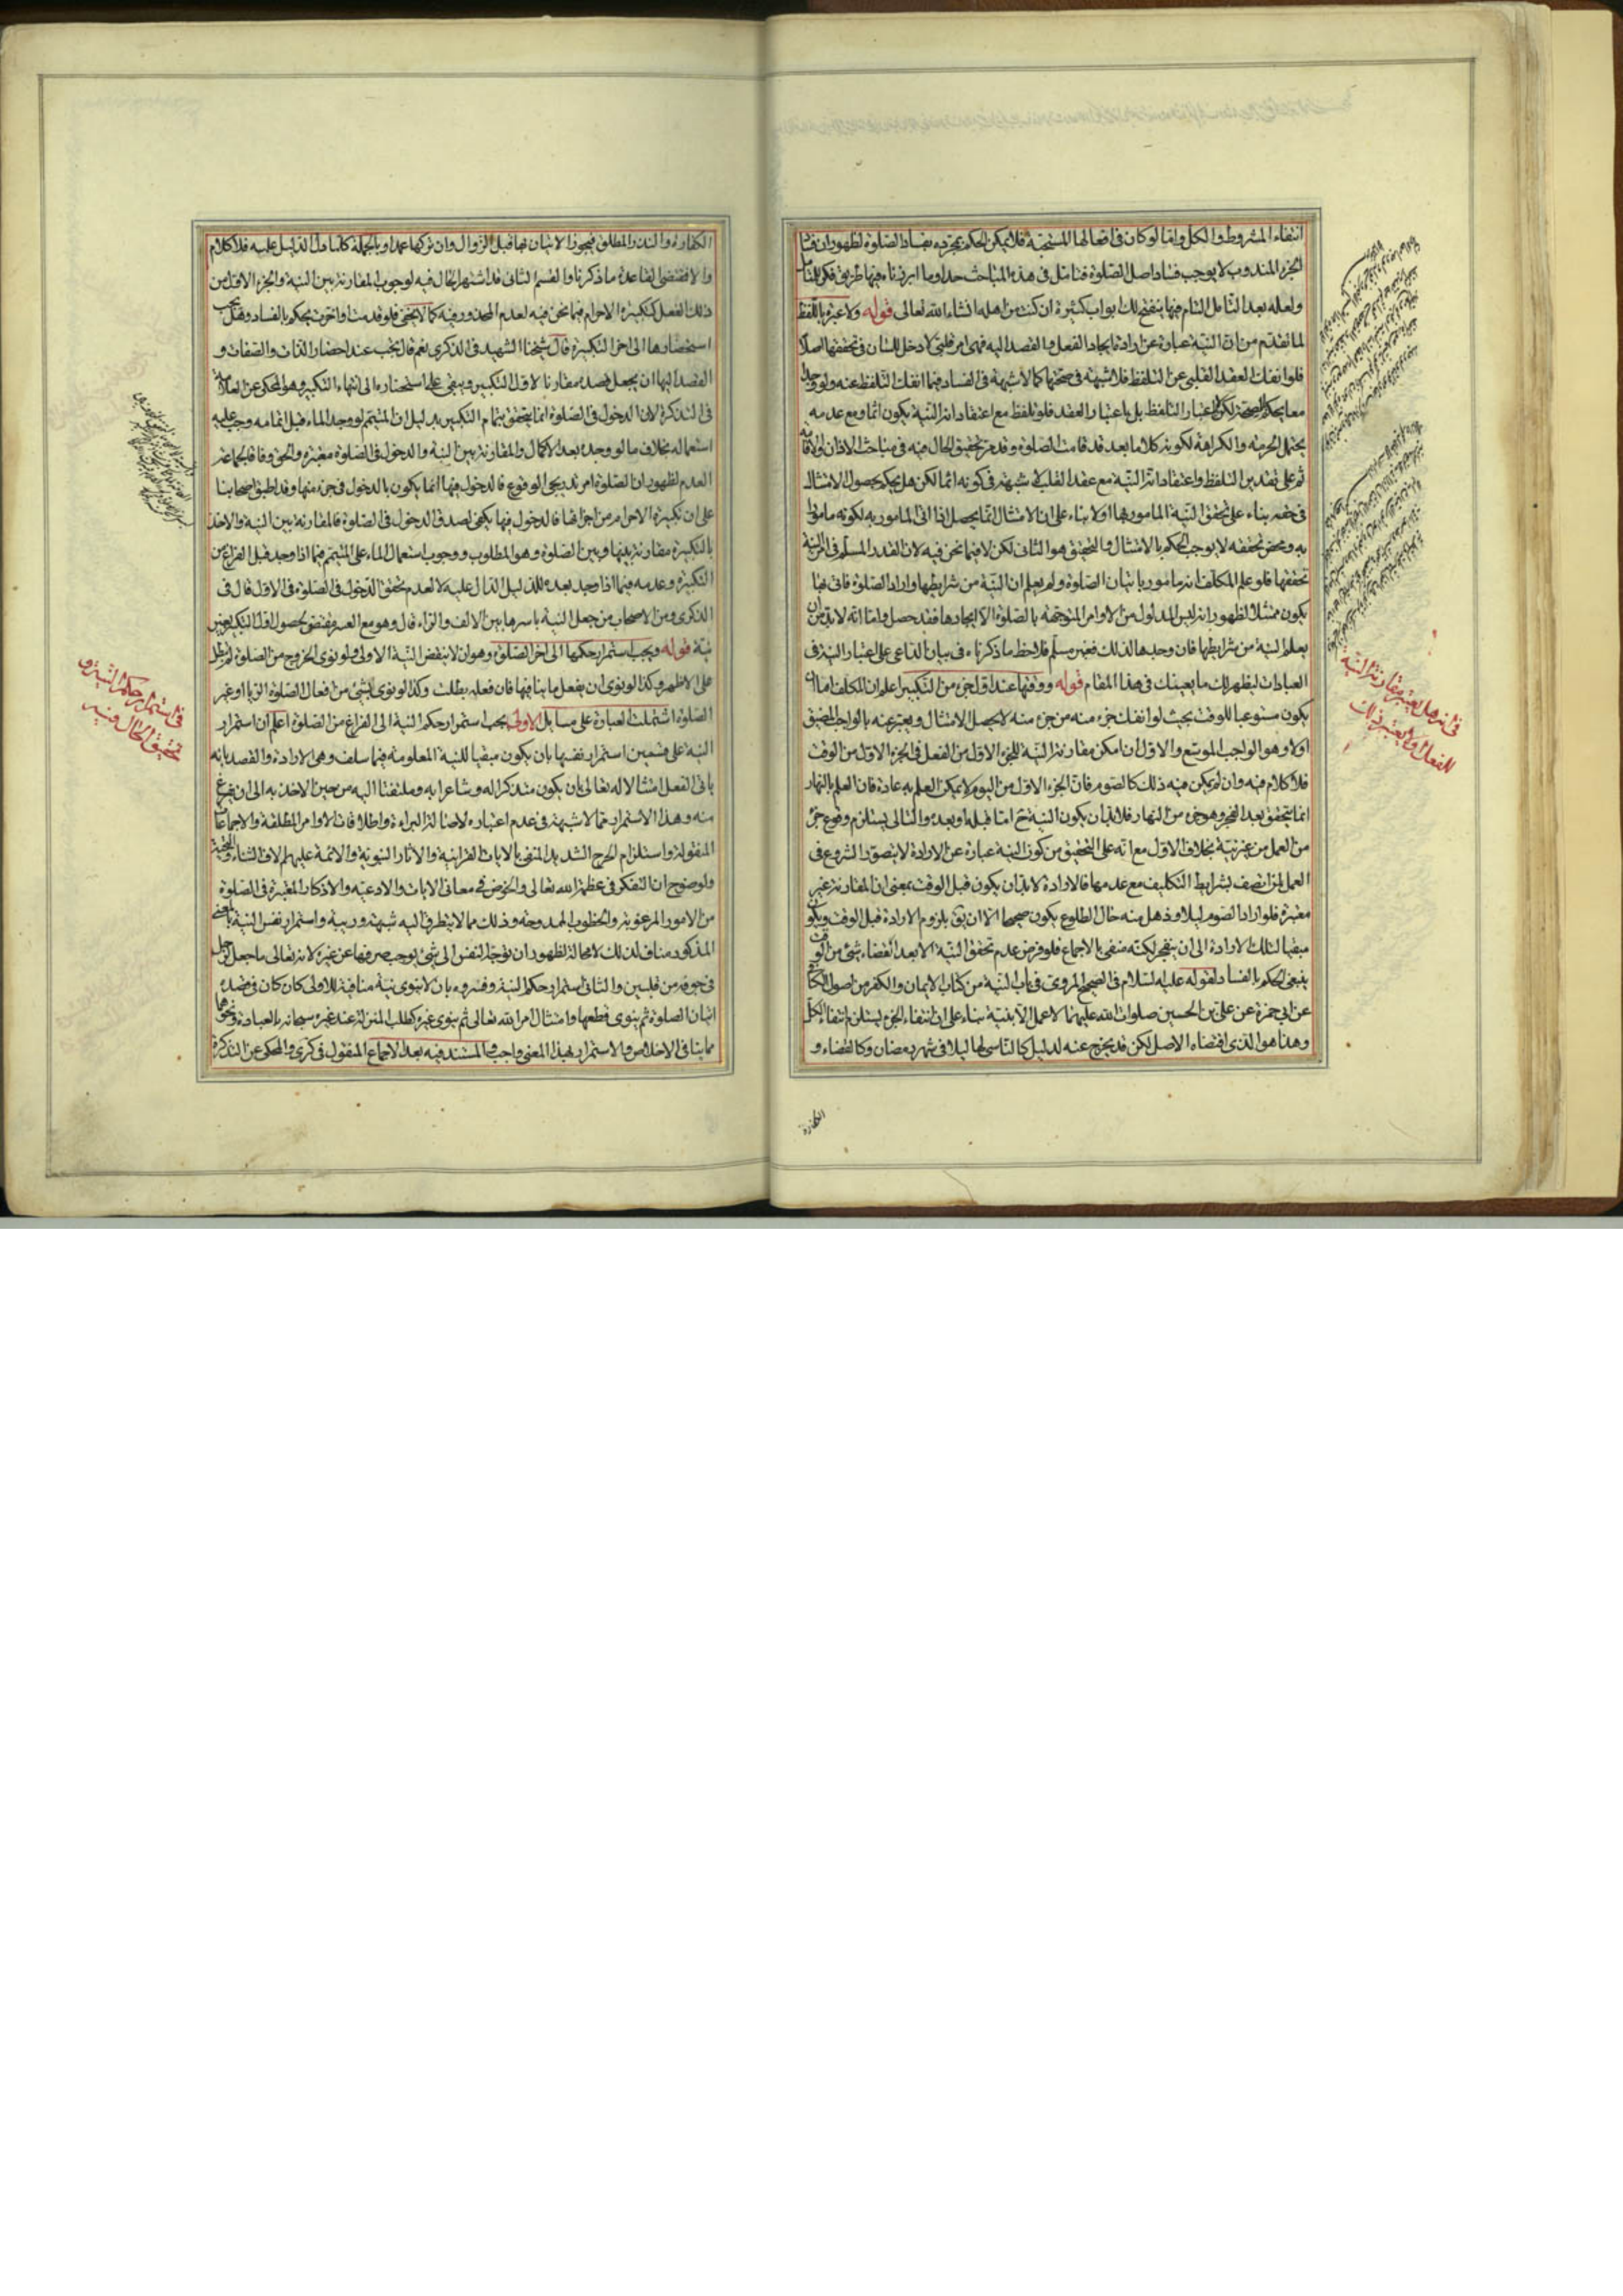 انتفاء المشروط والكل واما لو كان فى افعالها المستحبة فلا يمكن الحكم بمجرده بفساد الصلوة لظهور ان فساد
الجزء المندوب لا يوجب فساد اصل الصلوة فتامل فى هذه المباحث جدا وما ابرزناه فيها طريق فكر للتامل
ولعله بعد التامل التام فيها ينفتح لك ابواب كثيرة ان كنت من اهله انشاء الله تعالى قوله ولا عبرة باللفظ
لما تقدم من ان النية عبارة عن ارادة ايجاد الفعل والقصد اليه فهى امر قلبى لا دخل للسان فى تحققها اصلا
فلو انفك العقد القلبى عن التلفظ فلا شبهة فى صحتها كما لا شبهة فى الفساد فيما انفك التلفظ عنه ولو وجدا
معا يحكم بالصحة لكن لا باعتبار التلفظ بل باعتبار العقد فلو تلفظ مع اعتقاد انه النية يكون اثما ومع عدمه
يحتمل الحرمة والكراهة لكونه كلاما بعد قد قامت الصلوة وقد مر تحقيق الحال فيه فى مباحث الاذان والاقامة
ثم على تقدير التلفظ واعتقاد انه النية مع عقد القلب لا شبهة فى كونه اثما لكن هل يحكم بحصول الامتثال
فى حقه بناء على تحقق النية المامور بها اولا بناء على ان الامتثال انما يحصل اذا اتى المامور به لكونه مامورا
به ومحض تحققه لا يوجب الحكم بالامتثال والتحقيق هو الثانى لكن لا فيما نحن فيه لان القدر المسلم فى امر النية
تحققها فلو علم المكلف انه مامور باتيان الصلوة ولم يعلم ان النية من شرايطها واراد الصلوة فاتى بها
يكون ممتثلا لظهور انه ليس المدلول من الاوامر المتوجهة بالصلوة الا ايجادها فقد حصل واما انه لا بد من ان
يعلم النية من شرايطها فان وجدها لذلك فغير مسلم فلاحظ ما ذكرناه فى بيان الداعى على اعتبار النية فى
العبادات ليظهر لك ما يعينك فى هذا المقام قوله ووقتها عند اول جزء من التكبير اعلم ان المكلف اما ان
يكون مستوعبا للوقت بحيث لو انفك جزء منه من جزء منه لا يحصل الامتثال ويعبر عنه بالواجب المضيق
اولا وهو الواجب الموسع والاول ان امكن مقارنة النية للجزء الاول من الفعل فى الجزء الاول من الوقت
فلا كلام فيه وان لم يمكن فيه ذلك كالصوم فان الجزء الاول من اليوم لا يمكن العلم به عادة فان العلم بالنهار
انما يتحقق بعد الفجر وهو جزء من النهار فلا بد ان يكون النية ح اما قبله او بعده والثانى يستلزم وقوع جزء
من العمل من غير نية بخلاف الاول مع انه على التحقيق من كون النية عبارة عن الارادة لا يتصور الشروع فى
العمل لمن اتصف بشرايط التكليف مع عدمها فالارادة لا بد ان يكون قبل الوقت بمعنى ان المقارنة غير
معتبرة فلو اراد الصوم ليلا وذهل منه حال الطلوع يكون صحيحا الا ان يق بلزوم الارادة قبل الوقت ويكون
مبقيا لتلك الارادة الى ان ينفجر لكنه منفى بالاجماع فلو فرض عدم تحقق النية الا بعد انقضاء شئ من الوقت
ينبغى الحكم بالفساد لقوله عليه السلام فى الصحيح المروى فى باب النية من كتاب الايمان والكفر من اصول الكافى
عن ابى حمزة عن على بن الحسين صلوات الله عليهما لا عمل الا بنية بناء على ان انتفاء الجزء يستلزم انتفاء الكل
وهذا هو الذى اقتضاه الاصل لكن قد يخرج عنه لدليل كالناسى لها ليلا فى شهر رمضان وكالقضاء و
الكفارة
فى انه هل يعتبر مقارنة النية
للفعل او لا يعتبر ذلك
الكفارة والنذر المطلق فيجوز الاتيان بها قبل الزوال وان تركها عمدا وبالجملة كلما دل الدليل عليه فلا كلام
والا فمقتضى القاعدة ما ذكرنا والقسم الثانى قد اشتهر الحال فيه لوجوب المقارنة بين النية والجزء الاول من
ذلك الفعل كتكبيرة الاحرام فيما نحن فيه لعدم المحذور فيه كما لا يخفى فلو قدمت او اخرت يحكم بالفساد وهل يجب
استحضارها الى اخر التكبيرة قال شيخنا الشهيد فى الذكرى نعم قال يجب عند احضار الذات والصفات و
القصد اليها ان يجعل قصده مقارنا لاول التكبير ويبقى على استحضاره الى انتهاء التكبير وهو المحكى عن العلامة
فى التذكرة لان الدخول فى الصلوة انما يتحقق بتمام التكبير بدليل ان المتيمم لو وجد الماء قبل اتمامه وجب عليه
استعماله بخلاف ما لو وجده بعد الاكمال والمقارنة بين النية والدخول فى الصلوة معتبرة والحق وفاقا لجماعة
العدم لظهور ان الصلوة امر تدريجى الوقوع فالدخول فيها انما يكون بالدخول فى جزء منها وقد اطبق اصحابنا
على ان تكبيرة الاحرام من اجزائها فالدخول فيها يكفى لصدق الدخول فى الصلوة فالمقارنة بين النية والاخذ
بالتكبيرة مقارنة بينها وبين الصلوة وهو المطلوب ووجوب استعمال الماء على المتيمم فيما اذا وجد قبل الفراغ من
التكبيرة وعدمه فيما اذا وجد بعده للدليل الدال عليه لا لعدم تحقق الدخول فى الصلوة فى الاول قال فى
الذكرى ومن الاصحاب من جعل النية باسرها بين الالف والراء قال وهو مع العسر مقتضى لحصول اول التكبير بغير
نية قوله ويجب استمرار حكمها الى اخر الصلوة وهو ان لا ينقض النية الاولى ولو نوى الخروج من الصلوة لم تبطل
على الاظهر وكذا لو نوى ان يفعل ما ينافيها فان فعله بطلت وكذا لو نوى بشئ من افعال الصلوة الريا او غير
الصلوة اشتملت العبارة على مسايل الاولى يجب استمرار حكم النية الى الفراغ من الصلوة اعلم ان استمرار
النية على قسمين استمرار نفسها بان يكون مبقيا للنية المعلومة فيما سلف وهى الارادة والقصد بانه
ياتى الفعل امتثالا له تعالى بان يكون متذكرا له وشاعرا به وملتفتا اليه من حين الاخذ به الى ان يفرغ
منه وهذا الاستمرار مما لا شبهة فى عدم اعتباره لاصالة البراءة واطلاقات الاوامر المطلقة والاجماعات
المنقولة واستلزام الحرج الشديد المنفى بالايات القرانية والاثار النبوية والائمة عليهم الاف الثناء والتحية
ولوضوح ان التفكر فى عظمة الله تعالى والخوض فى معانى الايات والادعيه والاذكار المعتبرة فى الصلوة
من الامور المرغوبة والخطوب الممدوحة وذلك مما لا يتطرق اليه شبهة وريبة واستمرار نفس النية بالمعنى
المذكور مناف لذلك لا محالة لظهور ان توجه النفس الى شئ يوجب صرفها عن غيره لانه تعالى ما جعل لرجل
فى جوفه من قلبين والثانى استمرار حكم النية وفسروه بان لا ينوى نية منافية للاولى كان كان فى قصده
اتيان الصلوة ثم ينوى قطعها او امتثال امر الله تعالى ثم ينوى غيره كطلب المنزلة عند غيره سبحانه بالعبادة ونحوهما
مما ينافى الاخلاص والاستمرار بهذا المعنى واجب والمستند فيه بعد الاجماع المنقول فى كرى والمحكى عن التذكرة
فى استمرار حكم النية و
تحقيق الحال فيه